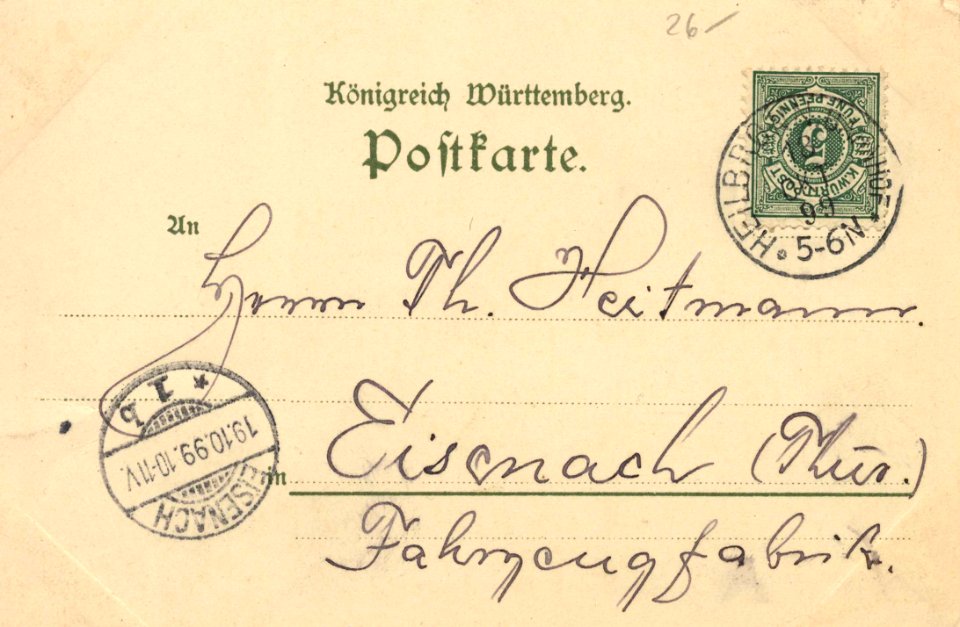 26-
Königreich Württemberg.
Postkarte.
FÜNF PFENNIG
5
K.WÜRTT.POST
HEILBRONN
99
5-6N
An
Herrn Th. Heitmann.
Eisenach (Thür.)
in
Fahrzeugfabrik.
EISENACH
19.10.99.10-11V.
* 1 b